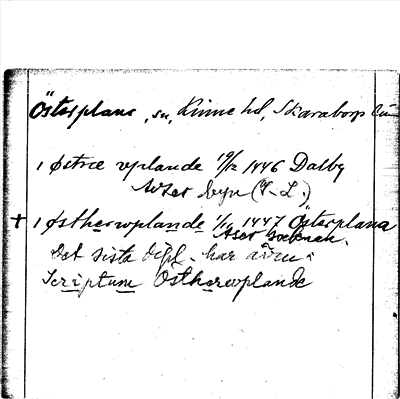 Österplana, sn, Kinne hd, Skaraborgs län
i østræ vplande 19/12 1446 Dalby
avser byn (I. L.)
+ i østheroplande 1/1 1447 Österplana
Avser socknen.
Det sista dipl. har även:
Scriptum Østheroplande